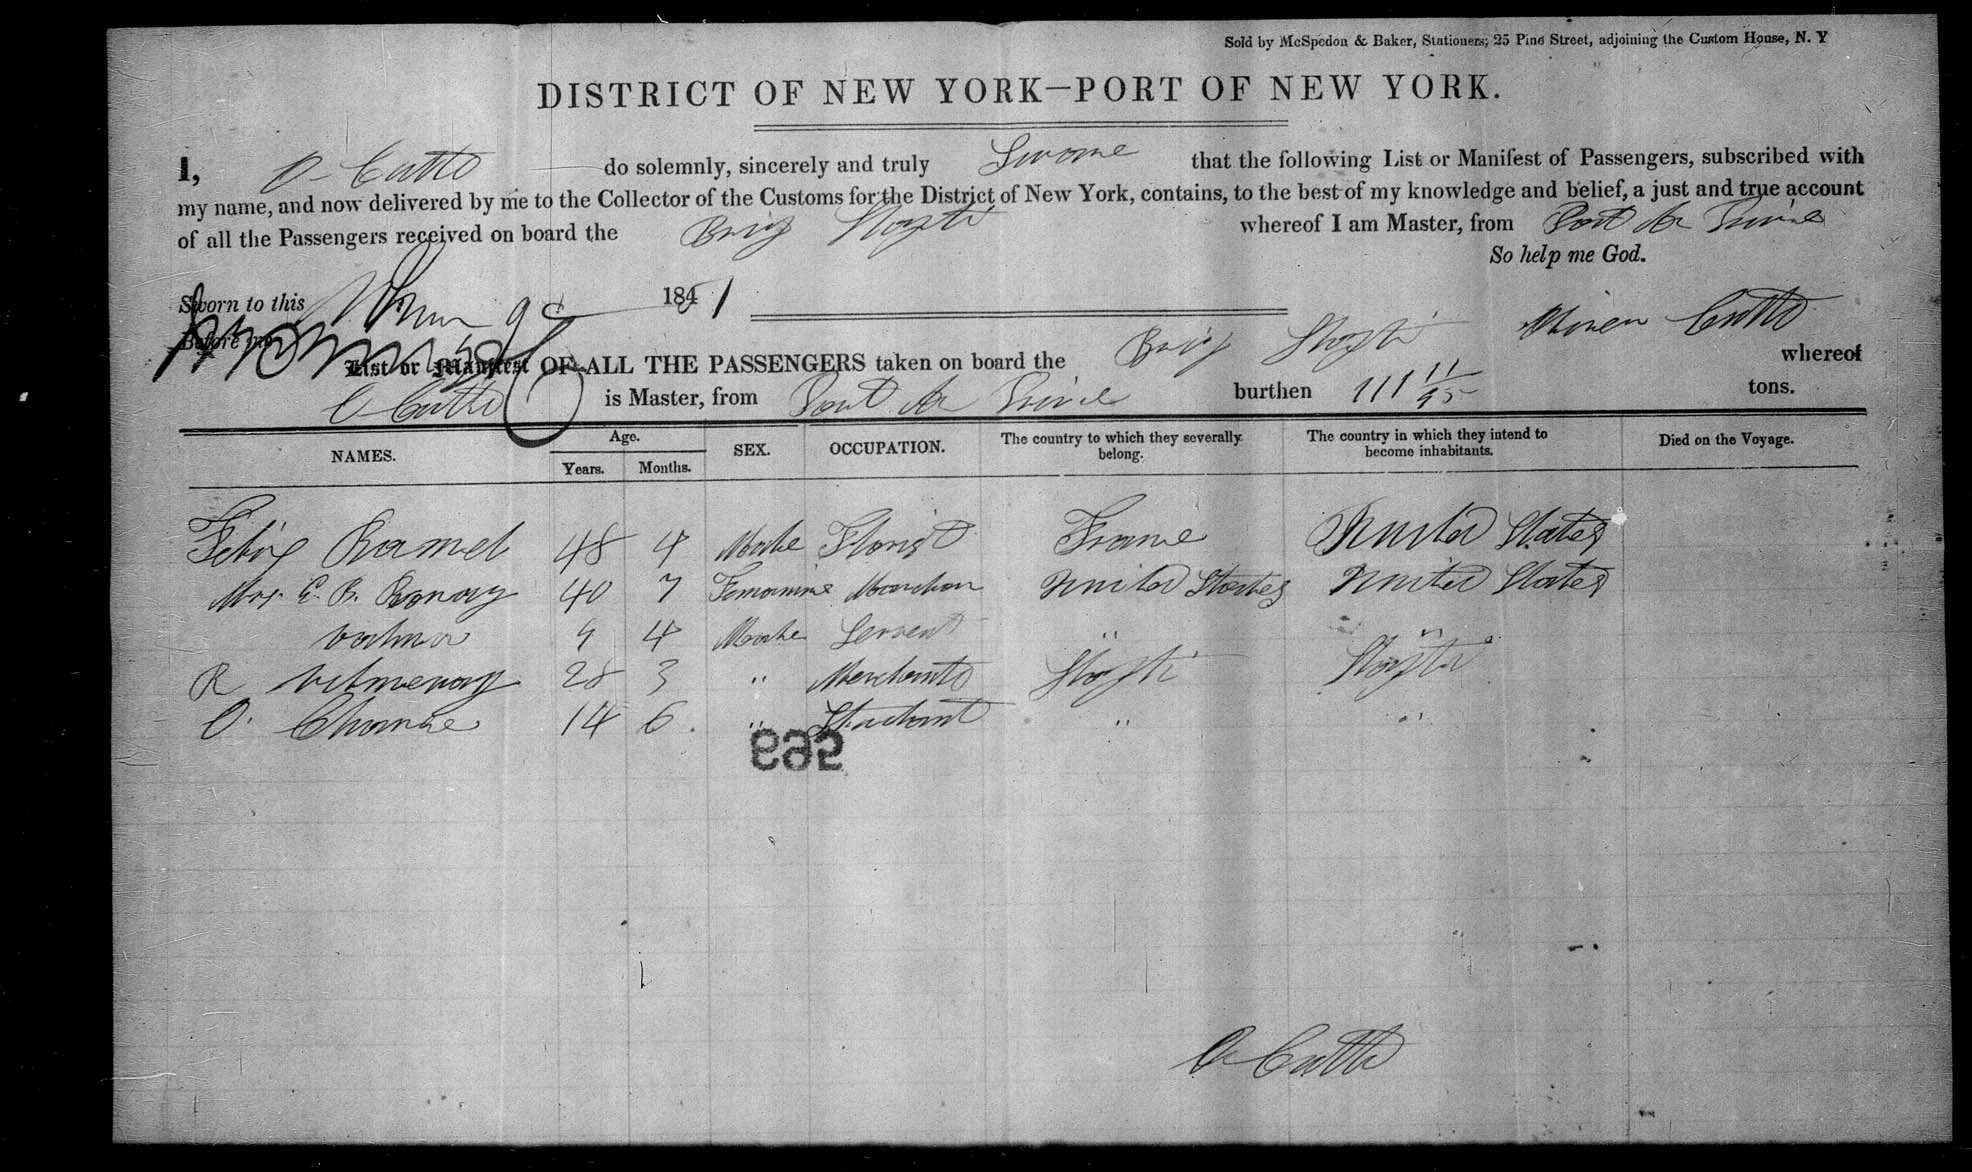 Sold by McSpedon & Baker, Stationers, 25 Pine Street, adjoining the Custom House, N. Y
DISTRICT OF NEW YORK—PORT OF NEW YORK.
I, O Cutts do solemnly, sincerely and truly Swore that the following List or Manifest of Passengers, subscribed with
my name, and now delivered by me to the Collector of the Customs for the District of New York, contains, to the best of my knowledge and belief, a just and true account
of all the Passengers received on board the Brig Hayti whereof I am Master, from Port Au Prince
So help me God.
Sworn to this 9 1851
Before me Cutts
List or Manifest OF ALL THE PASSENGERS taken on board the Brig Hayti whereof
O Cutts is Master, from Port Au Prince burthen 111 11/95 tons.
NAMES. Age. Years. Months. SEX. OCCUPATION. The country to which they severally belong. The country in which they intend to become inhabitants. Died on the Voyage.
Ramel 48 4 Male Florist France United States
Mrs. E. B. 40 7 United States United States
9 4 Male Servent " "
R 28 3 " Merchants Hayti Hayti
O. 14 6. " Student " "
595
O Cutts